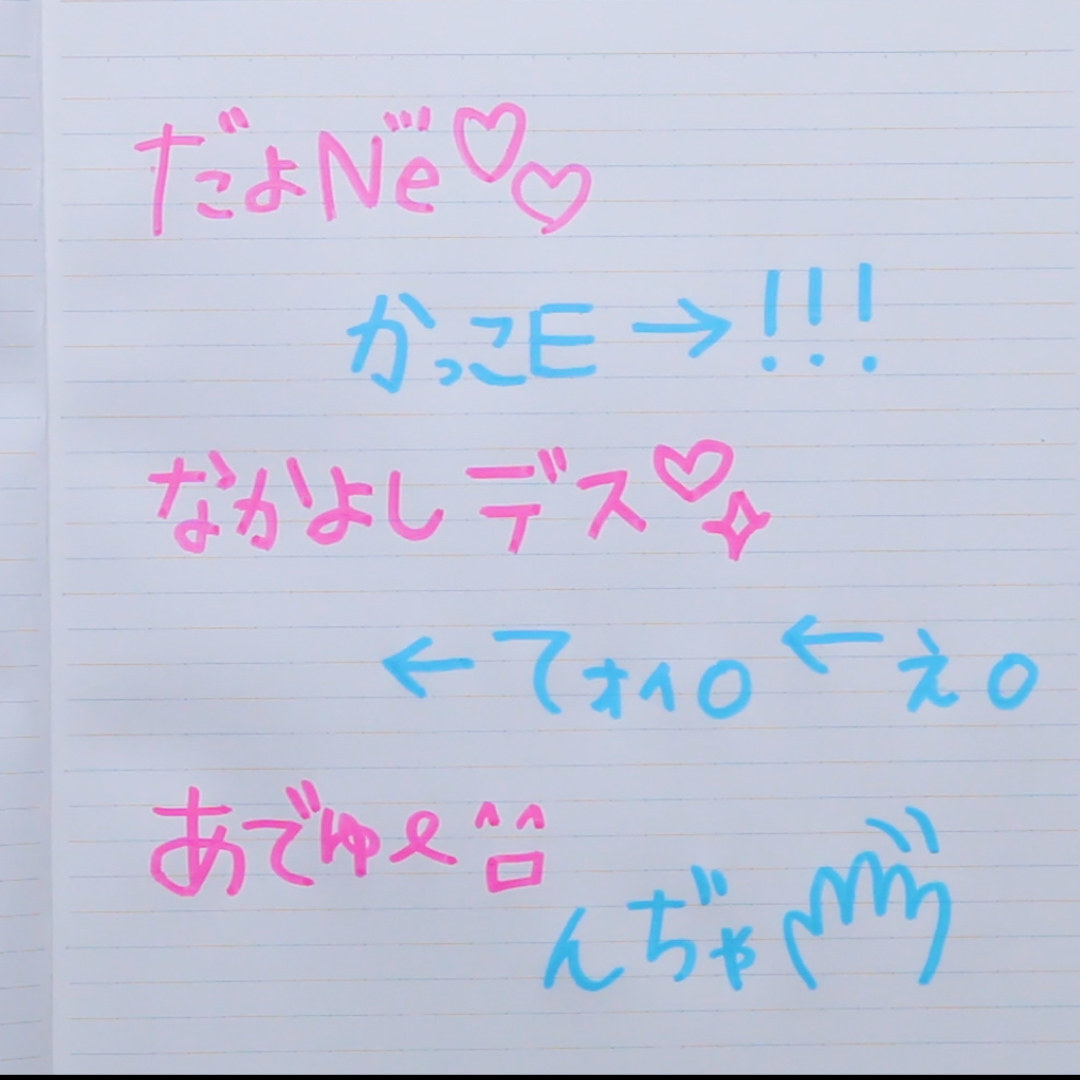 だょNe゛♡♡
かっこE→!!!
なかよしデス♡
←てォィo←ぇo
あでゅ^^ロ
んぢゃ